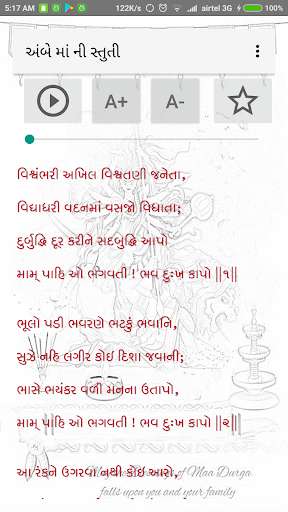 5:17 AM 122K/s airtel 3G 100%
અંબે માં ની સ્તુતી
A+ A-
વિશ્વંભરી અખિલ વિશ્વતણી જનેતા,
વિદ્યાધરી વદનમાં વસજો વિધાતા;
દુર્બુદ્ધિ દૂર કરીને સદબુદ્ધિ આપો
મામ્ પાહિ ઓ ભગવતી ! ભવ દુઃખ કાપો ||૧||
ભૂલો પડી ભવરણે ભટકું ભવાનિ,
સુઝે નહિ લગીર કોઇ દિશા જવાની;
ભાસે ભયંકર વળી મનના ઉતાપો,
મામ્ પાહિ ઓ ભગવતી ! ભવ દુઃખ કાપો ||૨||
આ રંકને ઉગરવા નથી કોઇ આરો,
of Maa Durga
falls upon you and your family